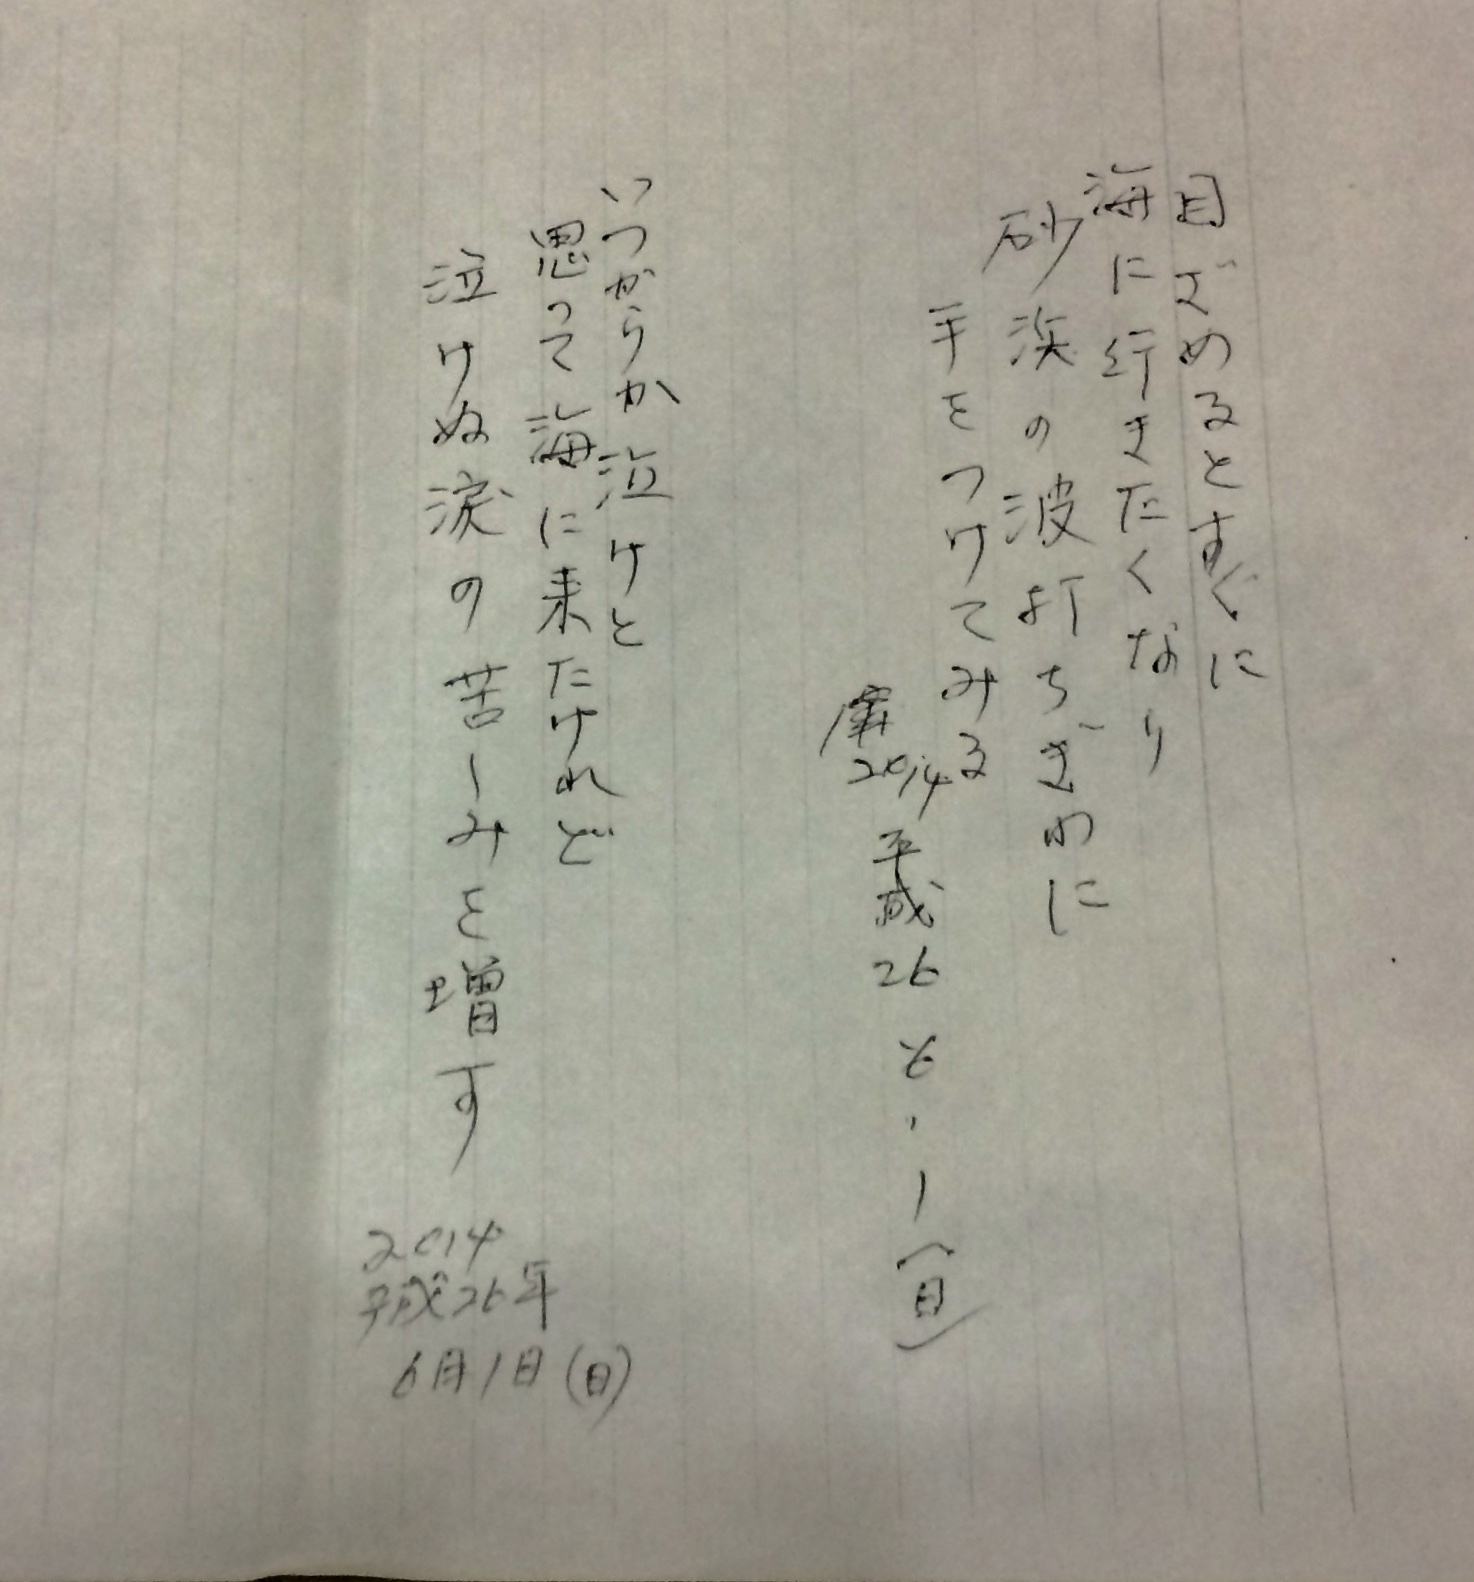 目ざめるとすぐに
海に行きたくなり
砂浜の波打ちぎわに
手をつけてみる
2014 平成26 6.1(日)
いつからか泣けと
思って海に来たけれど
泣けぬ涙の苦しみを増す
2014
平成26年
6月1日(日)